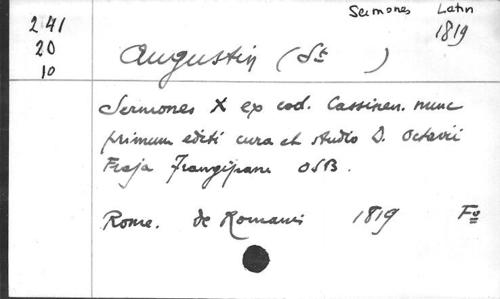 Sermones Latin
1819
241
20
10
Augustin (St )
Sermones X ex cod. Cassinen. nunc
primum editi cura et studio D. Octavii
Fraja Frangipane OSB.
Rome. de Romanis 1819 Fo